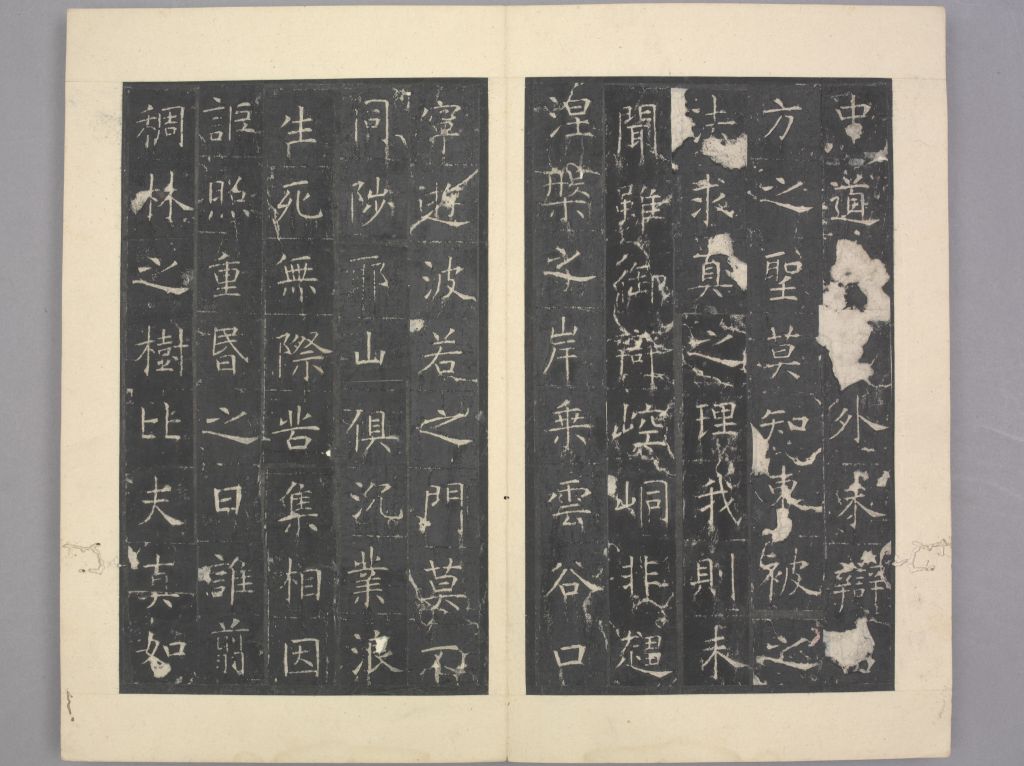 中道外未辯
方之聖莫知東被之
法求真之理我則未
聞雖御辯崆峒非趨
涅槃之岸乘雲谷口
寧遊波若之門莫不
同陟耶山俱沉業浪
生死無際苦集相因
詎照重昬之日誰翦
稠林之樹比夫真如